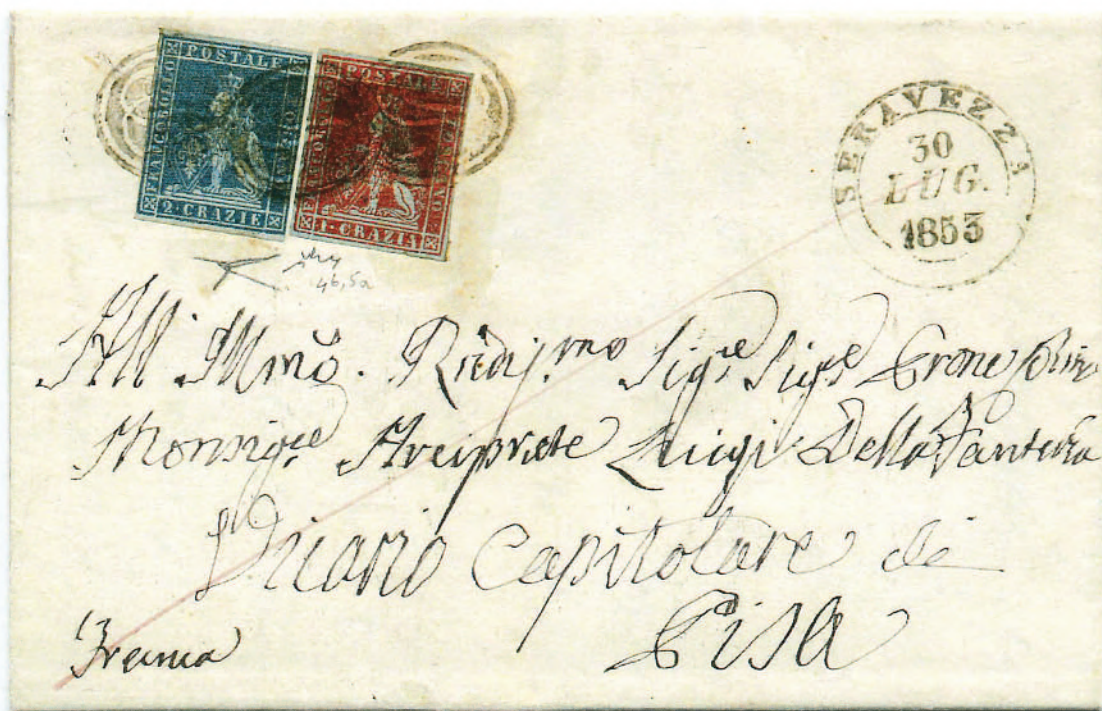 FRANCOBOLLO POSTALE TOSCANO
2 · CRAZIE
FRANCOBOLLO POSTALE TOSCANO
1 · CRAZIA
SERAVEZZA
30
LUG.
1853
All' Illmō. Sigre Sigre Prone
Monsigre Arciprete Luigi Della Fanteria
Vicario Capitolare di
Pisa